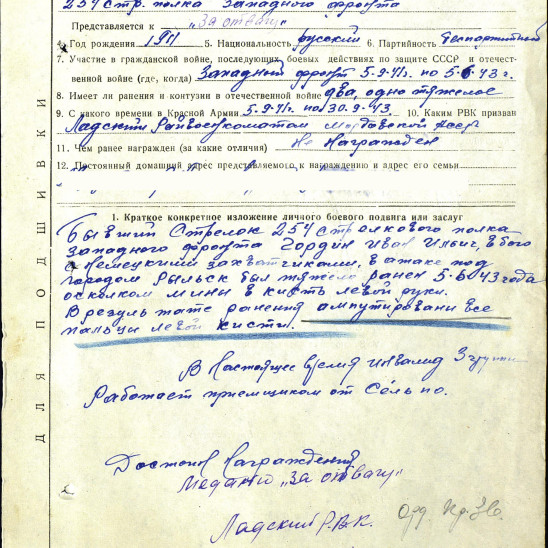 254 Стр. полка Западного фронта
Представляется к "За отвагу"
4. Год рождения 1911 5. Национальность русский 6. Партийность беспартийный
7. Участие в гражданской войне, последующих боевых действиях по защите СССР и отечест-
венной войне (где, когда) Западный фронт 5.9.41г. по 5.6.43 г.
8. Имеет ли ранения и контузии в отечественной войне два, одно тяжелое
9. С какого времени в Красной Армии 5.9.41г. по 30.9.43. 10. Каким РВК призван
Ладским Райвоенкоматом Мордовской АССР
11. Чем ранее награжден (за какие отличия) Не Награжден
12. Постоянный домашний адрес представляемого к награждению и адрес его семьи
1. Краткое конкретное изложение личного боевого подвига или заслуг
Бывший Стрелок 254 Стрелкового полка
Западного фронта Гордин Иван Ильич, в бою
с Немецкими захватчиками, в атаке под
городом Рыльск был тяжело ранен 5.6.43 года
осколком мины в кисть левой руки.
В результате ранения ампутированы все
пальцы левой кисти.
В Настоящее время инвалид 3 группы
Работает приемщиком от Сельпо.
Достоин Награждения
Медалью "За отвагу"
Ладский Р.В.К.
ДЛЯ ПОДШИВКИ